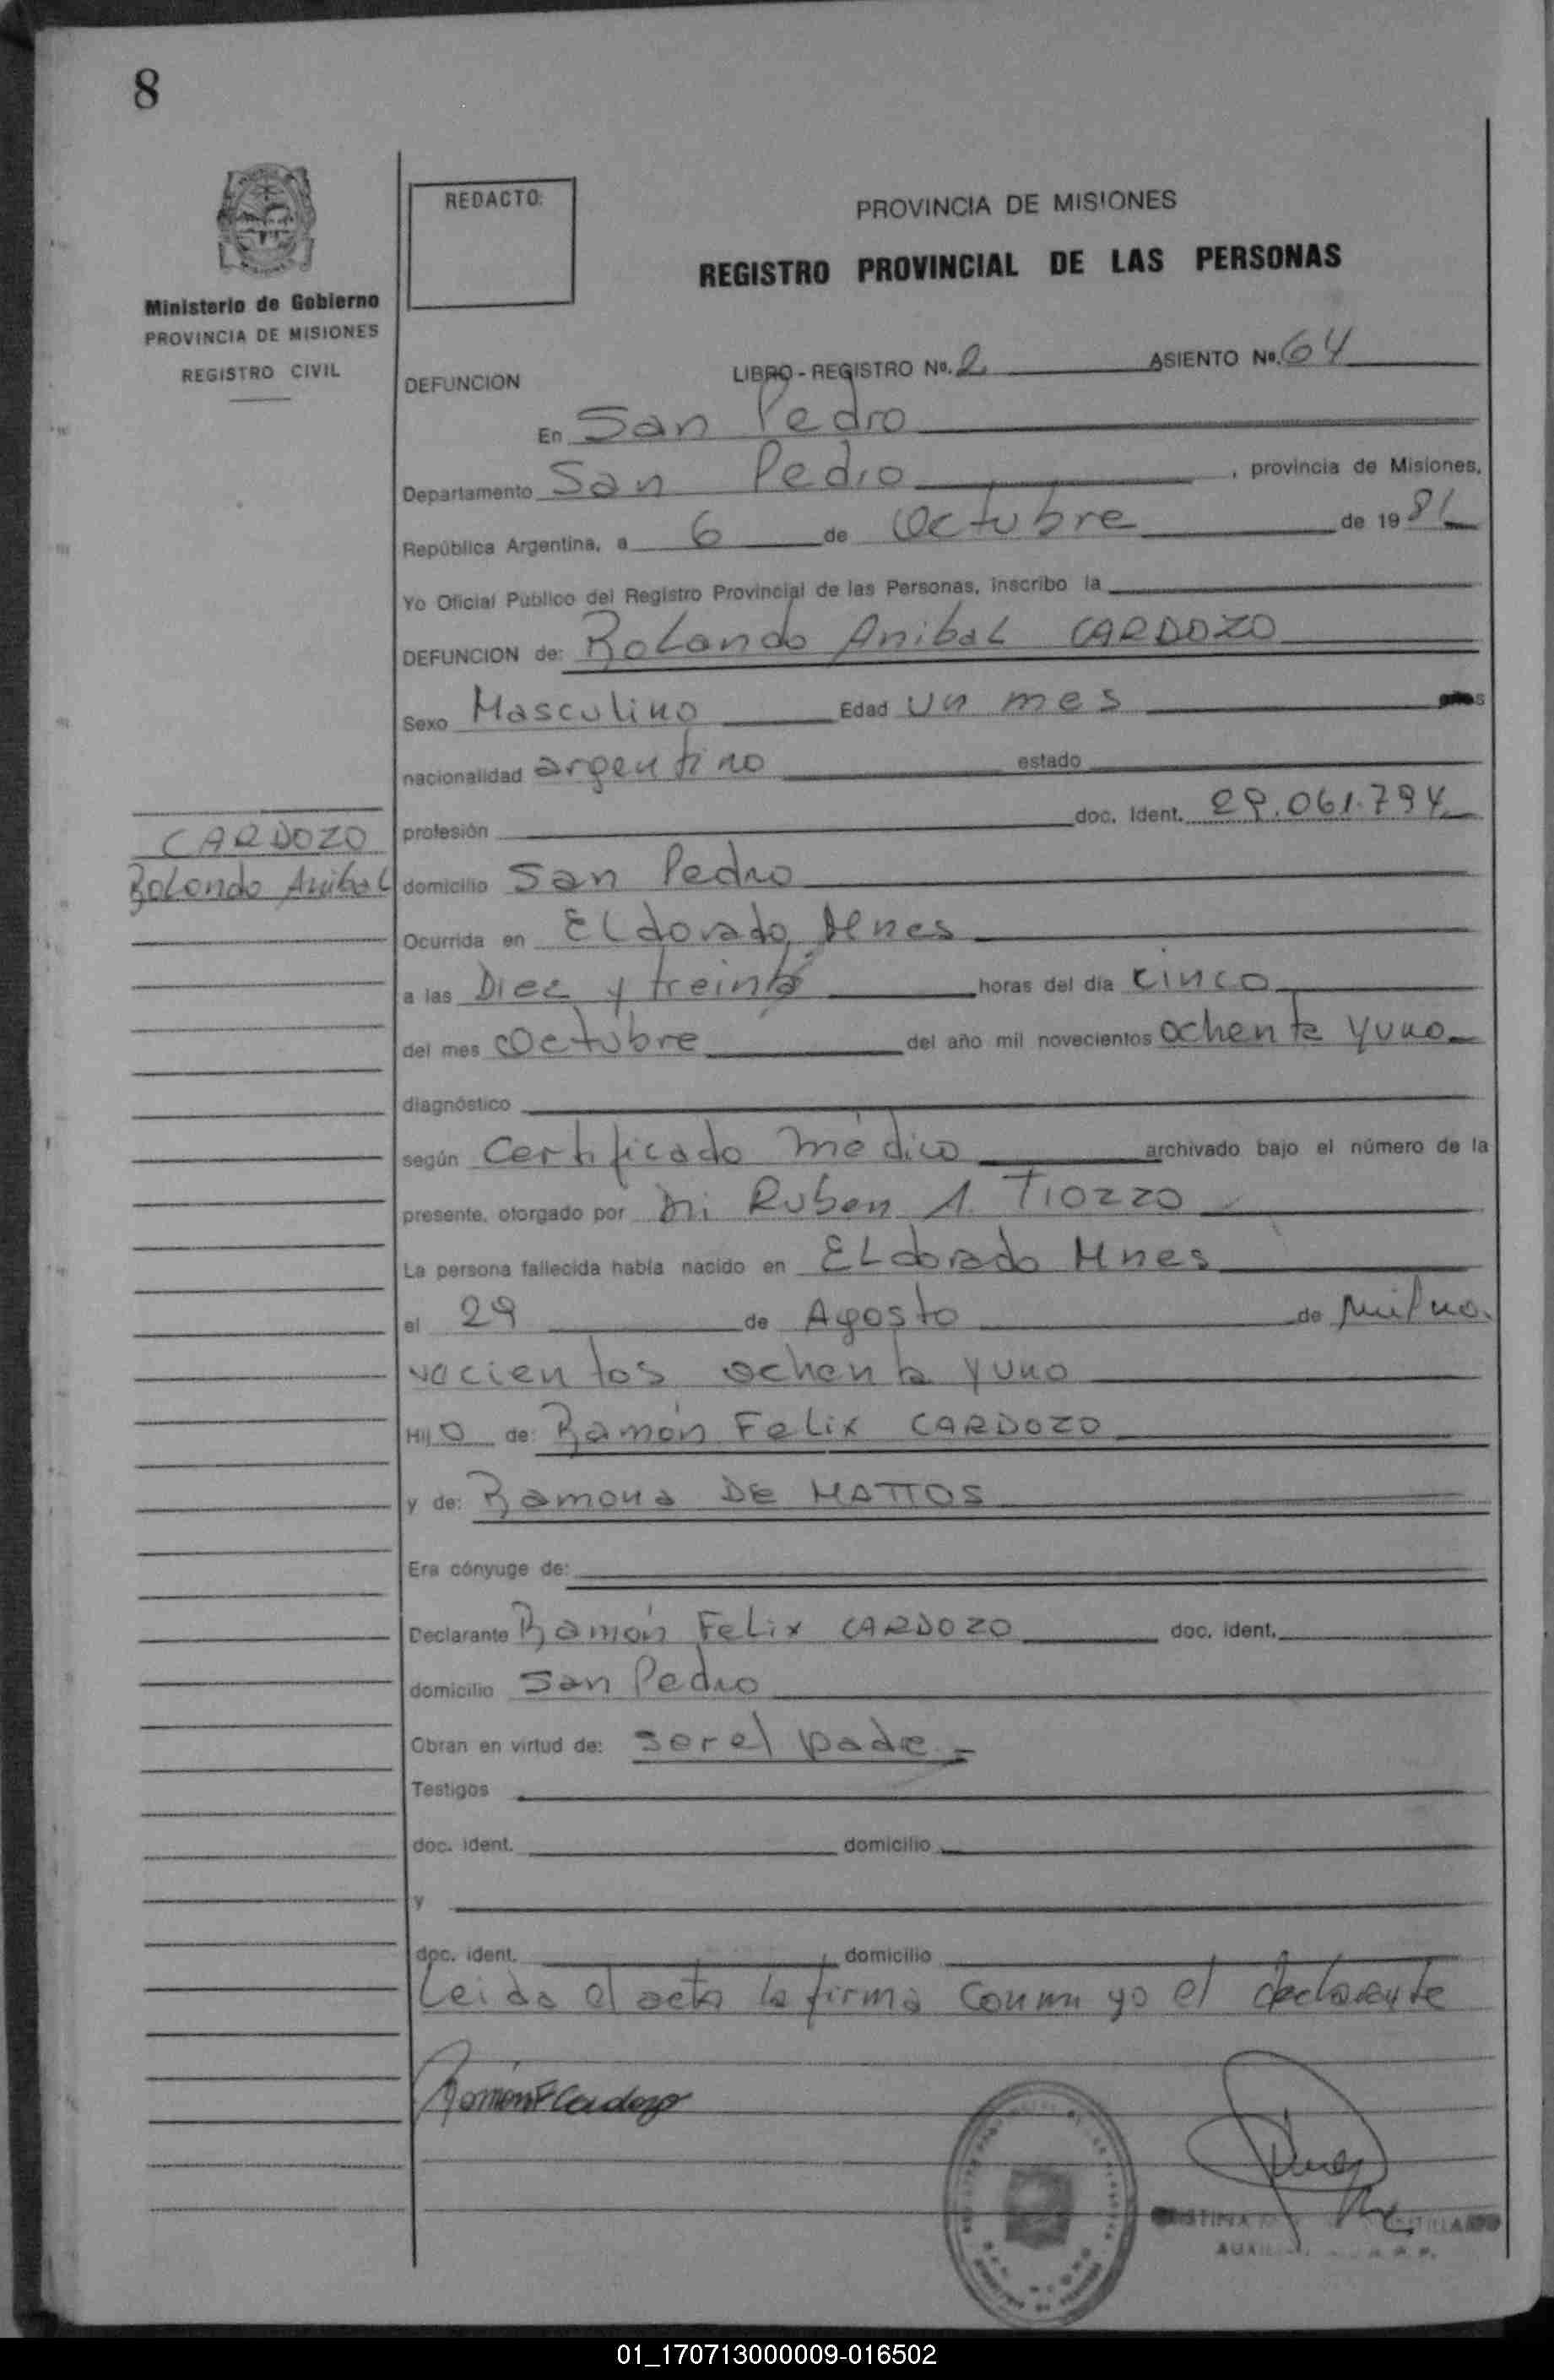 8
REDACTO:
PROVINCIA DE MISIONES
REGISTRO PROVINCIAL DE LAS PERSONAS
Ministerio de Gobierno
PROVINCIA DE MISIONES
REGISTRO CIVIL
DEFUNCION LIBRO - REGISTRO Nº. 2 ASIENTO Nº. 64
En San Pedro
Departamento San Pedro , provincia de Misiones,
República Argentina, a 6 de Octubre de 1981
Yo Oficial Público del Registro Provincial de las Personas, inscribo la
DEFUNCION de: Rolando Anibal CARDOZO
Sexo Masculino Edad un mes
nacionalidad argentino estado
profesión doc. Ident. 29.061.794
CARDOZO
Rolando Anibal
domicilio San Pedro
Ocurrida en Eldorado, Mnes
a las Diez y treinta horas del día cinco
del mes Octubre del año mil novecientos ochenta y uno
diagnóstico
según Certificado médico archivado bajo el número de la
presente, otorgado por Dr. Ruben A. TIOZZO
La persona fallecida había nacido en Eldorado Mnes
el 29 de Agosto de Mil no.
vecientos ochenta y uno
Hijo de: Ramón Felix CARDOZO
y de: Ramona DE MATTOS
Era cónyuge de:
Declarante Ramón Felix CARDOZO doc. ident.
domicilio San Pedro
Obran en virtud de: ser el padre
Testigos
doc. ident. domicilio
y
doc. ident. domicilio
Leida el acta la firma conmigo el declarante
Ramón F Cardozo
01_170713000009-016502